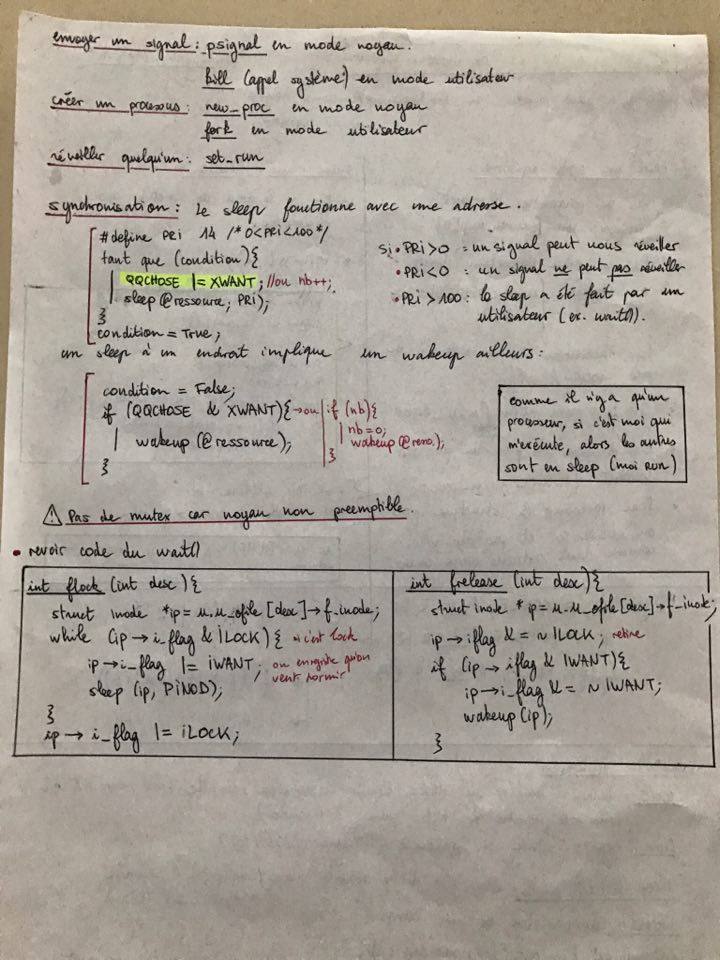 envoyer un signal : psignal en mode noyau.
kill (appel système) en mode utilisateur
créer un processus : new_proc en mode noyau
fork en mode utilisateur
réveiller quelqu'un : set_run
synchronisation : Le sleep fonctionne avec une adresse.
#define PRI 14 /* 0<PRI<100 */
tant que (condition){
QQCHOSE |= XWANT; //ou nb++;
sleep(@ressource, PRI);
}
condition = True;
si • PRI>0 : un signal peut nous réveiller
• PRI<0 : un signal ne peut pas réveiller
• PRI >100 : le sleep a été fait par un
utilisateur (ex. wait()).
un sleep à un endroit implique un wakeup ailleurs :
condition = False;
if (QQCHOSE & XWANT){ → ou
wakeup (@ressource);
}
if (nb){
nb=0;
wakeup(@);
}
comme il n'y a qu'un
processeur, si c'est moi qui
m'exécute, alors les autres
sont en sleep (moi RUN)
⚠ Pas de mutex car noyau non preemptible.
• revoir code du wait()
int flock (int desc){
struct inode *ip = u.u_ofile[desc]→f_inode;
while (ip → i_flag & ILOCK) { si c'est lock
ip→i_flag |= IWANT; on enregistre qu'on
veut dormir
sleep (ip, PINOD);
}
ip → i_flag |= ILOCK;
int frelease (int desc){
struct inode *ip = u.u_ofile[desc]→f_inode;
ip → iflag &= ~ILOCK; retire
if (ip → iflag & IWANT){
ip→i_flag &= ~IWANT;
wakeup(ip);
}